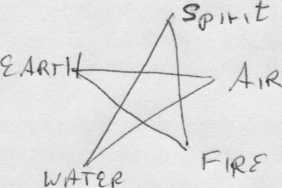 Spirit
EARTH
AIR
FIRE
WATER